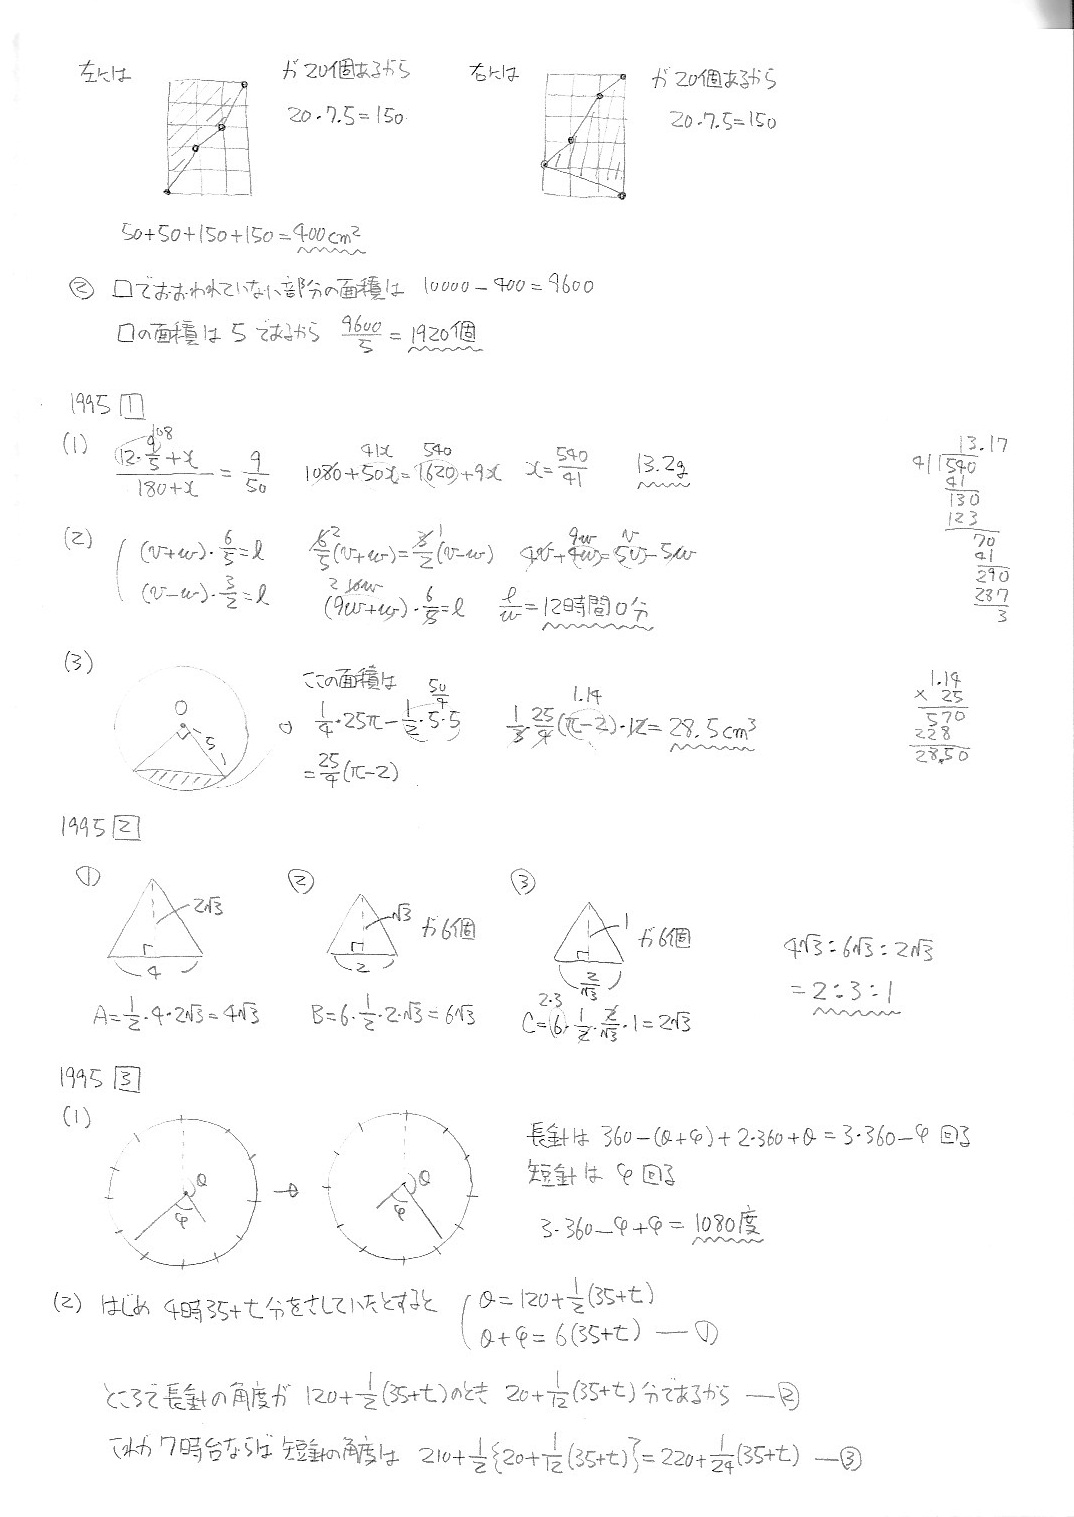 左には が20個あるから 右には が20個あるから
20・7.5=150 20・7.5=150
50+50+150+150=400cm²
② 口でおおわれていない部分の面積は 10000-400=9600
口の面積は 5 であるから 9600/5 = 1920個
1995 1
(1) (12・9/5+x)/(180+x) = 9/50 108 1080+50x=1620+9x 41x 540 x=540/41 13.2g
13.17
41)540
41
130
123
70
41
290
287
3
(2) (v+w)・6/5=l 6/5(v+w)=3/2(v-w) 2 1 4v+4w=5v-5w 9w v
(v-w)・3/2=l (9w+w)・6/5=l 2 10w l/w=12時間0分
(3) O 5 ここの面積は
1/4・25π-1/2・5・5 50/4 1/3・25/4(π-2)・12=28.5cm³ 1.14
=25/4(π-2)
1.14
× 25
570
228
28.50
1995 2
① 2√3 4 ② √3 2 が6個 ③ 1 2/√3 が6個
4√3:6√3:2√3
=2:3:1
A=1/2・4・2√3=4√3 B=6・1/2・2・√3=6√3 C=6・1/2・2/√3・1=2√3 2・3
1995 3
(1) θ φ → θ φ
長針は 360-(θ+φ)+2・360+θ=3・360-φ 回る
短針は φ 回る
3・360-φ+φ=1080度
(2) はじめ 4時35+t分をさしていたとすると θ=120+1/2(35+t)
θ+φ=6(35+t) ー①
ところで長針の角度が 120+1/2(35+t)のとき 20+1/12(35+t)分であるから ー②
これが7時台ならば 短針の角度は 210+1/2{20+1/12(35+t)}=220+1/24(35+t) ー③